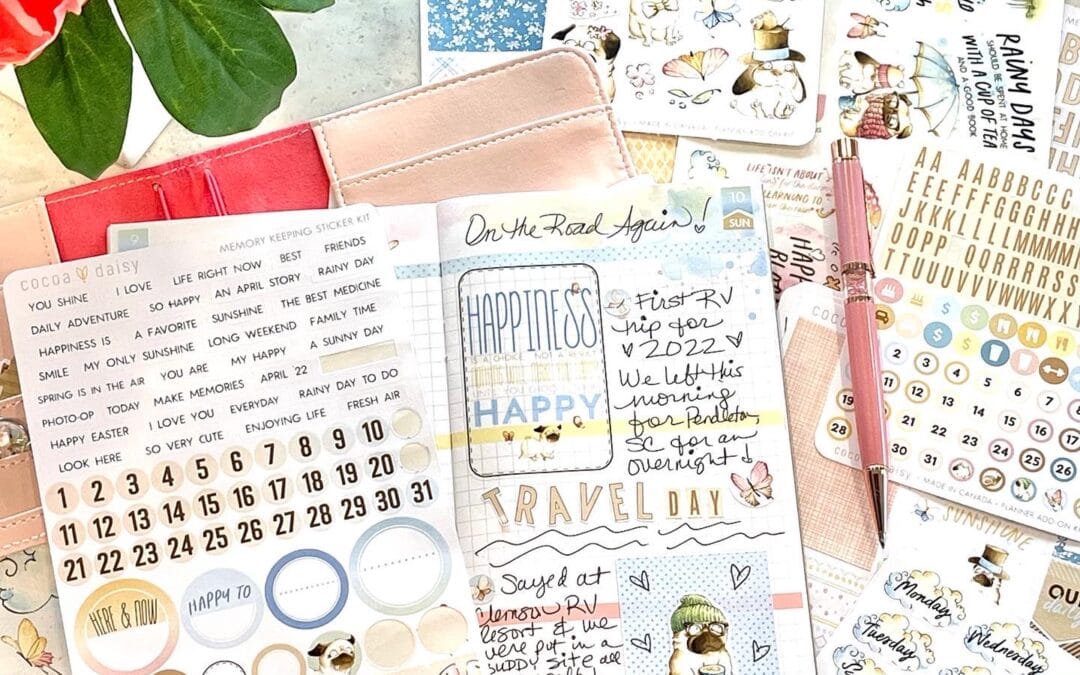 RAINY DAYS
SHOULD BE SPENT AT HOME
WITH A CUP OF TEA
AND A GOOD BOOK
MADE IN CANADA • PLANNER ADD ON KIT
LIFE ISN'T ABOUT
9
MEMORY KEEPING STICKER KIT
cocoa daisy
YOU SHINE I LOVE LIFE RIGHT NOW BEST FRIENDS
DAILY ADVENTURE SO HAPPY AN APRIL STORY RAINY DAY
HAPPINESS IS A FAVORITE SUNSHINE THE BEST MEDICINE
SMILE MY ONLY SUNSHINE LONG WEEKEND FAMILY TIME
SPRING IS IN THE AIR YOU ARE MY HAPPY A SUNNY DAY
PHOTO-OP TODAY MAKE MEMORIES APRIL 22
HAPPY EASTER I LOVE YOU EVERYDAY RAINY DAY TO DO
LOOK HERE SO VERY CUTE ENJOYING LIFE FRESH AIR
1 2 3 4 5 6 7 8 9 10
11 12 13 14 15 16 17 18 19 20
21 22 23 24 25 26 27 28 29 30 31
HERE & NOW
HAPPY TO
On the Road Again!
10
SUN
HAPPINESS
IS A CHOICE NOT A RESULT
HAPPY
First RV
trip for
2022
We left this
morning
for Pendleton,
SC for an
overnight!
TRAVEL DAY
Sayed at
Clemson RV
Resort & we
were put in a
site
AA AAABBBCC
EEEEFFGGGHHH
JKKLLLLMMMM
OOPP QQRRRRSS
TTUUUVVVVWWXX
2 3 4 5 6
19 12 13 14
28 21 22 23 24 17
30 31 24 25 26
MADE IN CANADA • PLANNER ADD ON KIT
SUNSHINE
Monday
Tuesday
Wednesday
OUR
daily